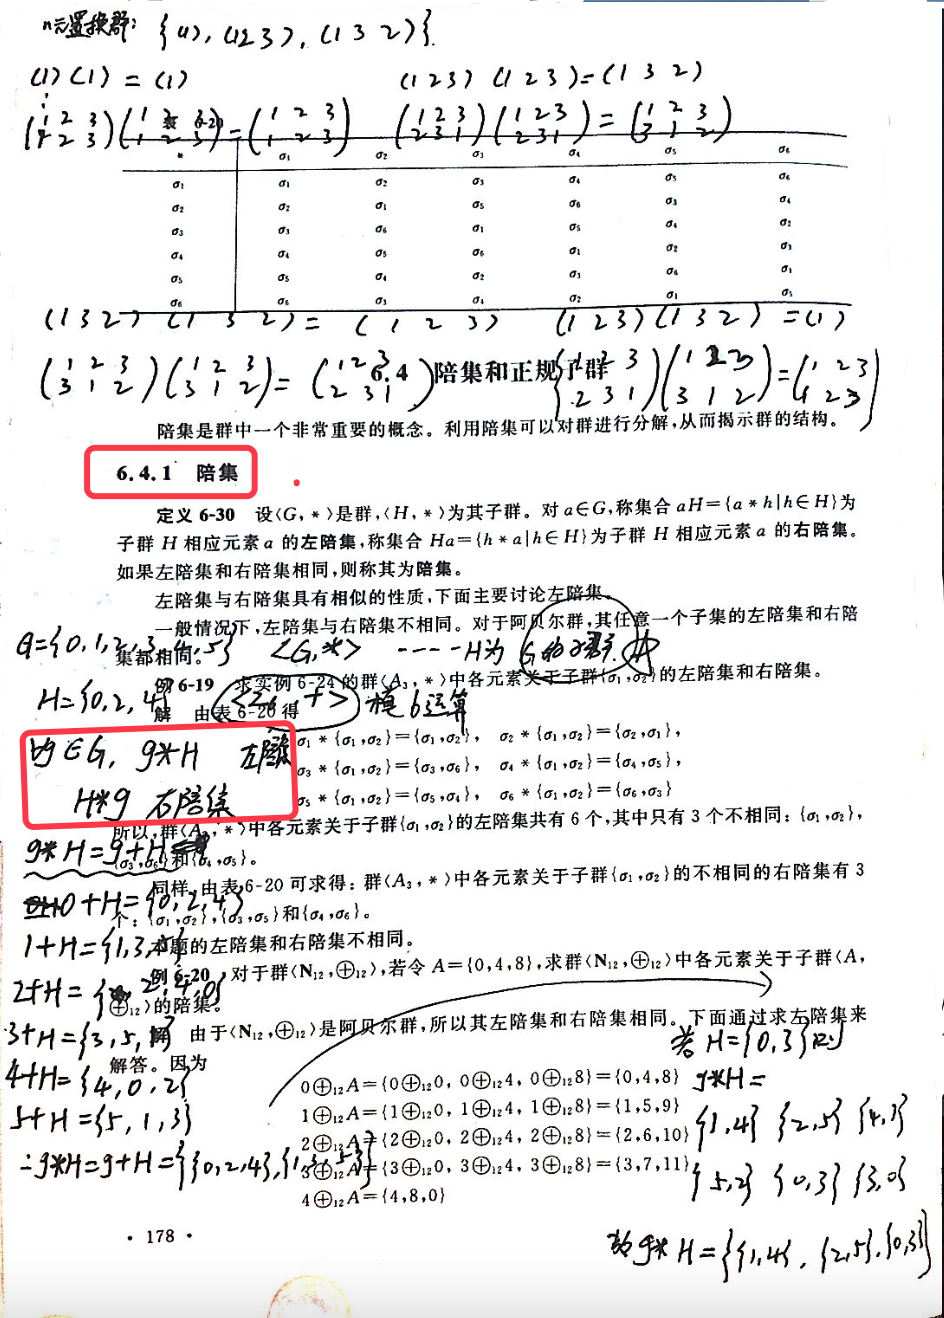 n元置换群: {(1), (123), (1 3 2)}.
(1) (1) = (1)
(1 2 3) (1 2 3) = (1 3 2)
(1 2 3 / 1 2 3)(1 2 3 / 1 2 3) = (1 2 3 / 1 2 3)
(1 2 3 / 2 3 1)(1 2 3 / 2 3 1) = (1 2 3 / 3 1 2)
表 6-20
* σ₁ σ₂ σ₃ σ₄ σ₅ σ₆
σ₁ σ₁ σ₂ σ₃ σ₄ σ₅ σ₆
σ₂ σ₂ σ₁ σ₅ σ₆ σ₃ σ₄
σ₃ σ₃ σ₆ σ₁ σ₅ σ₄ σ₂
σ₄ σ₄ σ₅ σ₆ σ₁ σ₂ σ₃
σ₅ σ₅ σ₄ σ₂ σ₃ σ₆ σ₁
σ₆ σ₆ σ₃ σ₄ σ₂ σ₁ σ₅
(1 3 2) (1 3 2) = (1 2 3)
(1 2 3) (1 3 2) = (1)
(1 2 3 / 3 1 2)(1 2 3 / 3 1 2) = (1 2 3 / 2 3 1)
(1 2 3 / 2 3 1)(1 2 3 / 3 1 2) = (1 2 3 / 1 2 3)
6.4 陪集和正规子群
陪集是群中一个非常重要的概念。利用陪集可以对群进行分解,从而揭示群的结构。
6.4.1 陪集
定义 6-30 设⟨G,*⟩是群,⟨H,*⟩为其子群。对 a∈G,称集合 aH={a*h|h∈H}为
子群 H 相应元素 a 的左陪集,称集合 Ha={h*a|h∈H}为子群 H 相应元素 a 的右陪集。
如果左陪集和右陪集相同,则称其为陪集。
左陪集与右陪集具有相似的性质,下面主要讨论左陪集。
一般情况下,左陪集与右陪集不相同。对于阿贝尔群,其任意一个子集的左陪集和右陪
集都相同。
G={0,1,2,3,4,5}
⟨G,*⟩ ---- H为G的子群.
例 6-19 求实例 6-24 的群⟨A₃,*⟩中各元素关于子群{σ₁,σ₂}的左陪集和右陪集。
H={0,2,4}
解 由表 6-20 得
⟨Z₆,+⟩ 模6运算
σ₁*{σ₁,σ₂}={σ₁,σ₂}, σ₂*{σ₁,σ₂}={σ₂,σ₁},
σ₃*{σ₁,σ₂}={σ₃,σ₆}, σ₄*{σ₁,σ₂}={σ₄,σ₅},
σ₅*{σ₁,σ₂}={σ₅,σ₄}, σ₆*{σ₁,σ₂}={σ₆,σ₃}
∀g∈G, g*H 左陪集
H*g 右陪集
所以,群⟨A₃,*⟩中各元素关于子群{σ₁,σ₂}的左陪集共有 6 个,其中只有 3 个不相同:{σ₁,σ₂},
{σ₃,σ₆}和{σ₄,σ₅}。
g*H=g+H
同样,由表 6-20 可求得:群⟨A₃,*⟩中各元素关于子群{σ₁,σ₂}的不相同的右陪集有 3
个:{σ₁,σ₂},{σ₃,σ₅}和{σ₄,σ₆}。
0+H={0,2,4}
本题的左陪集和右陪集不相同。
1+H={1,3,5}
例 6-20 对于群⟨N₁₂,⊕₁₂⟩,若令 A={0,4,8},求群⟨N₁₂,⊕₁₂⟩中各元素关于子群⟨A,
⊕₁₂⟩的陪集。
2+H={2,4,0}
解 由于⟨N₁₂,⊕₁₂⟩是阿贝尔群,所以其左陪集和右陪集相同。下面通过求左陪集来
解答。因为
3+H={3,5,
若 H={0,3}则
4+H={4,0,2}
0⊕₁₂A={0⊕₁₂0, 0⊕₁₂4, 0⊕₁₂8}={0,4,8}
g*H=
5+H={5,1,3}
1⊕₁₂A={1⊕₁₂0, 1⊕₁₂4, 1⊕₁₂8}={1,5,9}
2⊕₁₂A={2⊕₁₂0, 2⊕₁₂4, 2⊕₁₂8}={2,6,10}
{1,4} {2,5} {4,1}
∴g*H=g+H={{0,2,4},{1,3,5}}
3⊕₁₂A={3⊕₁₂0, 3⊕₁₂4, 3⊕₁₂8}={3,7,11}
{5,2} {0,3} {3,0}
4⊕₁₂A={4,8,0}
· 178 ·
故 g*H={{1,4}, {2,5}, {0,3}}